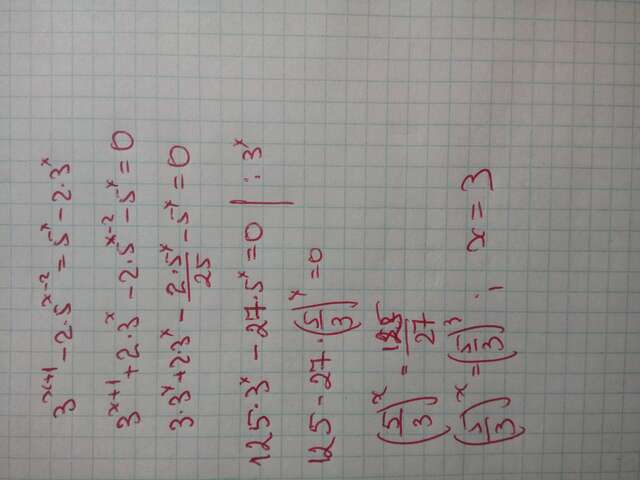 3^{x+1} - 2·5^{x-2} = 5^x - 2·3^x
3^{x+1} + 2·3^x - 2·5^{x-2} - 5^x = 0
3·3^x + 2·3^x - \frac{2·5^x}{25} - 5^x = 0
125·3^x - 27·5^x = 0 | : 3^x
125 - 27·(\frac{5}{3})^x = 0
(\frac{5}{3})^x = \frac{125}{27}
(\frac{5}{3})^x = (\frac{5}{3})^3 ; x = 3